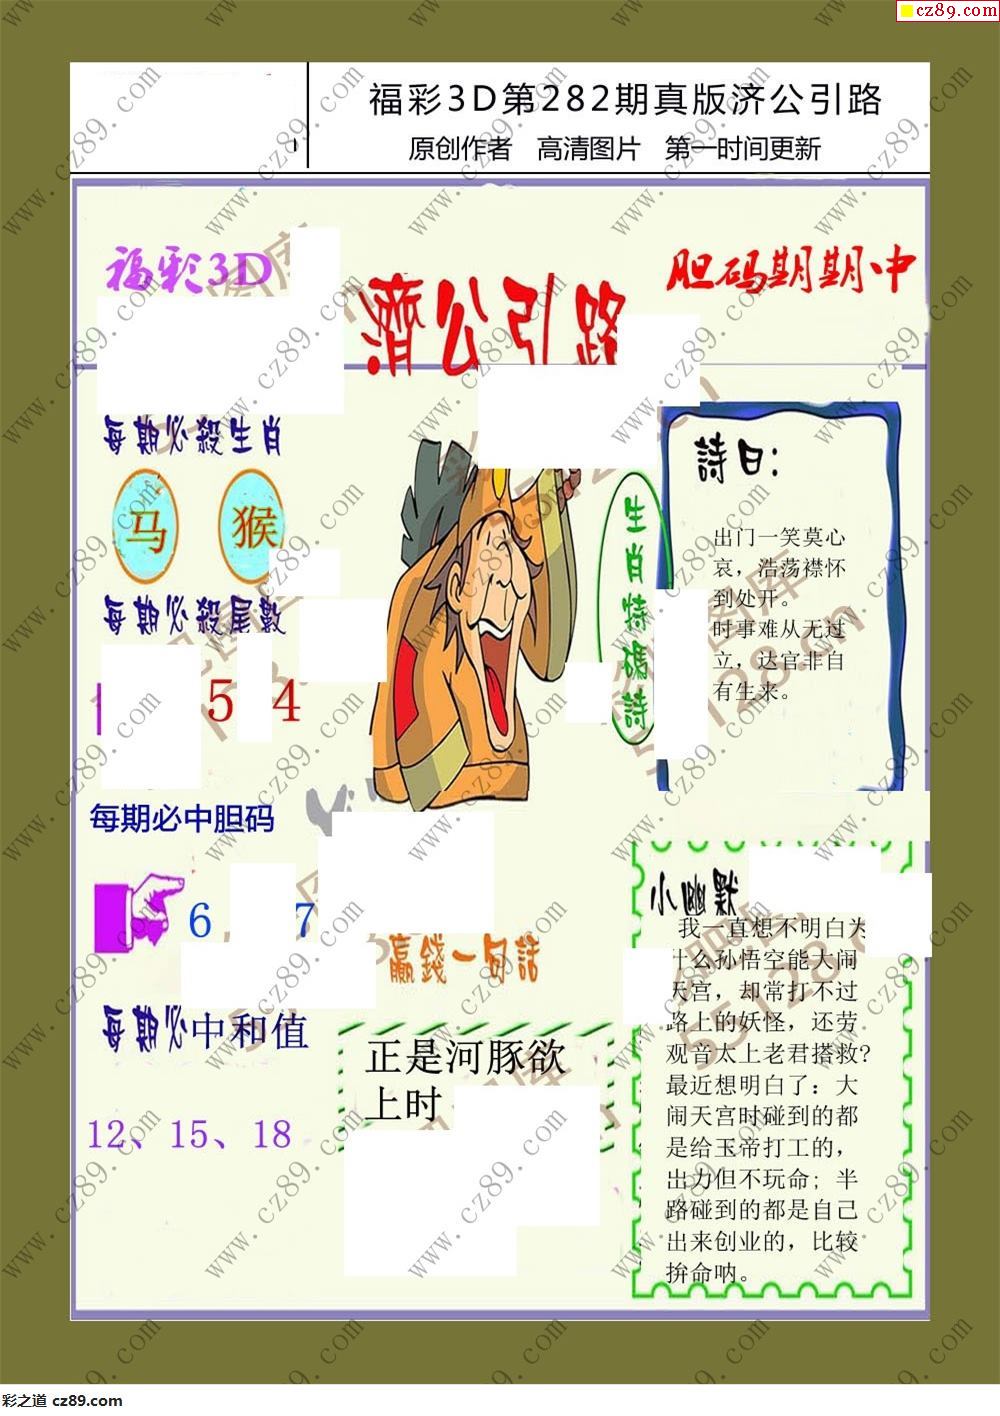 cz89.com
福彩3D第282期真版济公引路
原创作者 高清图片 第一时间更新
福彩3D
濟公引路
胆码期期中
每期必殺生肖
马 猴
每期必殺尾數
5 4
每期必中胆码
6 7
每期必中和值
12、15、18
生肖特碼詩
詩曰:
出门一笑莫心
哀，浩荡襟怀
到处开。
时事难从无过
立，达官非自
有生来。
赢錢一句話
正是河豚欲
上时
小幽默
我一直想不明白为
什么孙悟空能大闹
天宫，却常打不过
路上的妖怪，还劳
观音太上老君搭救?
最近想明白了：大
闹天宫时碰到的都
是给玉帝打工的，
出力但不玩命；半
路碰到的都是自己
出来创业的，比较
拚命呐。
www.cz89.com
彩之道 cz89.com